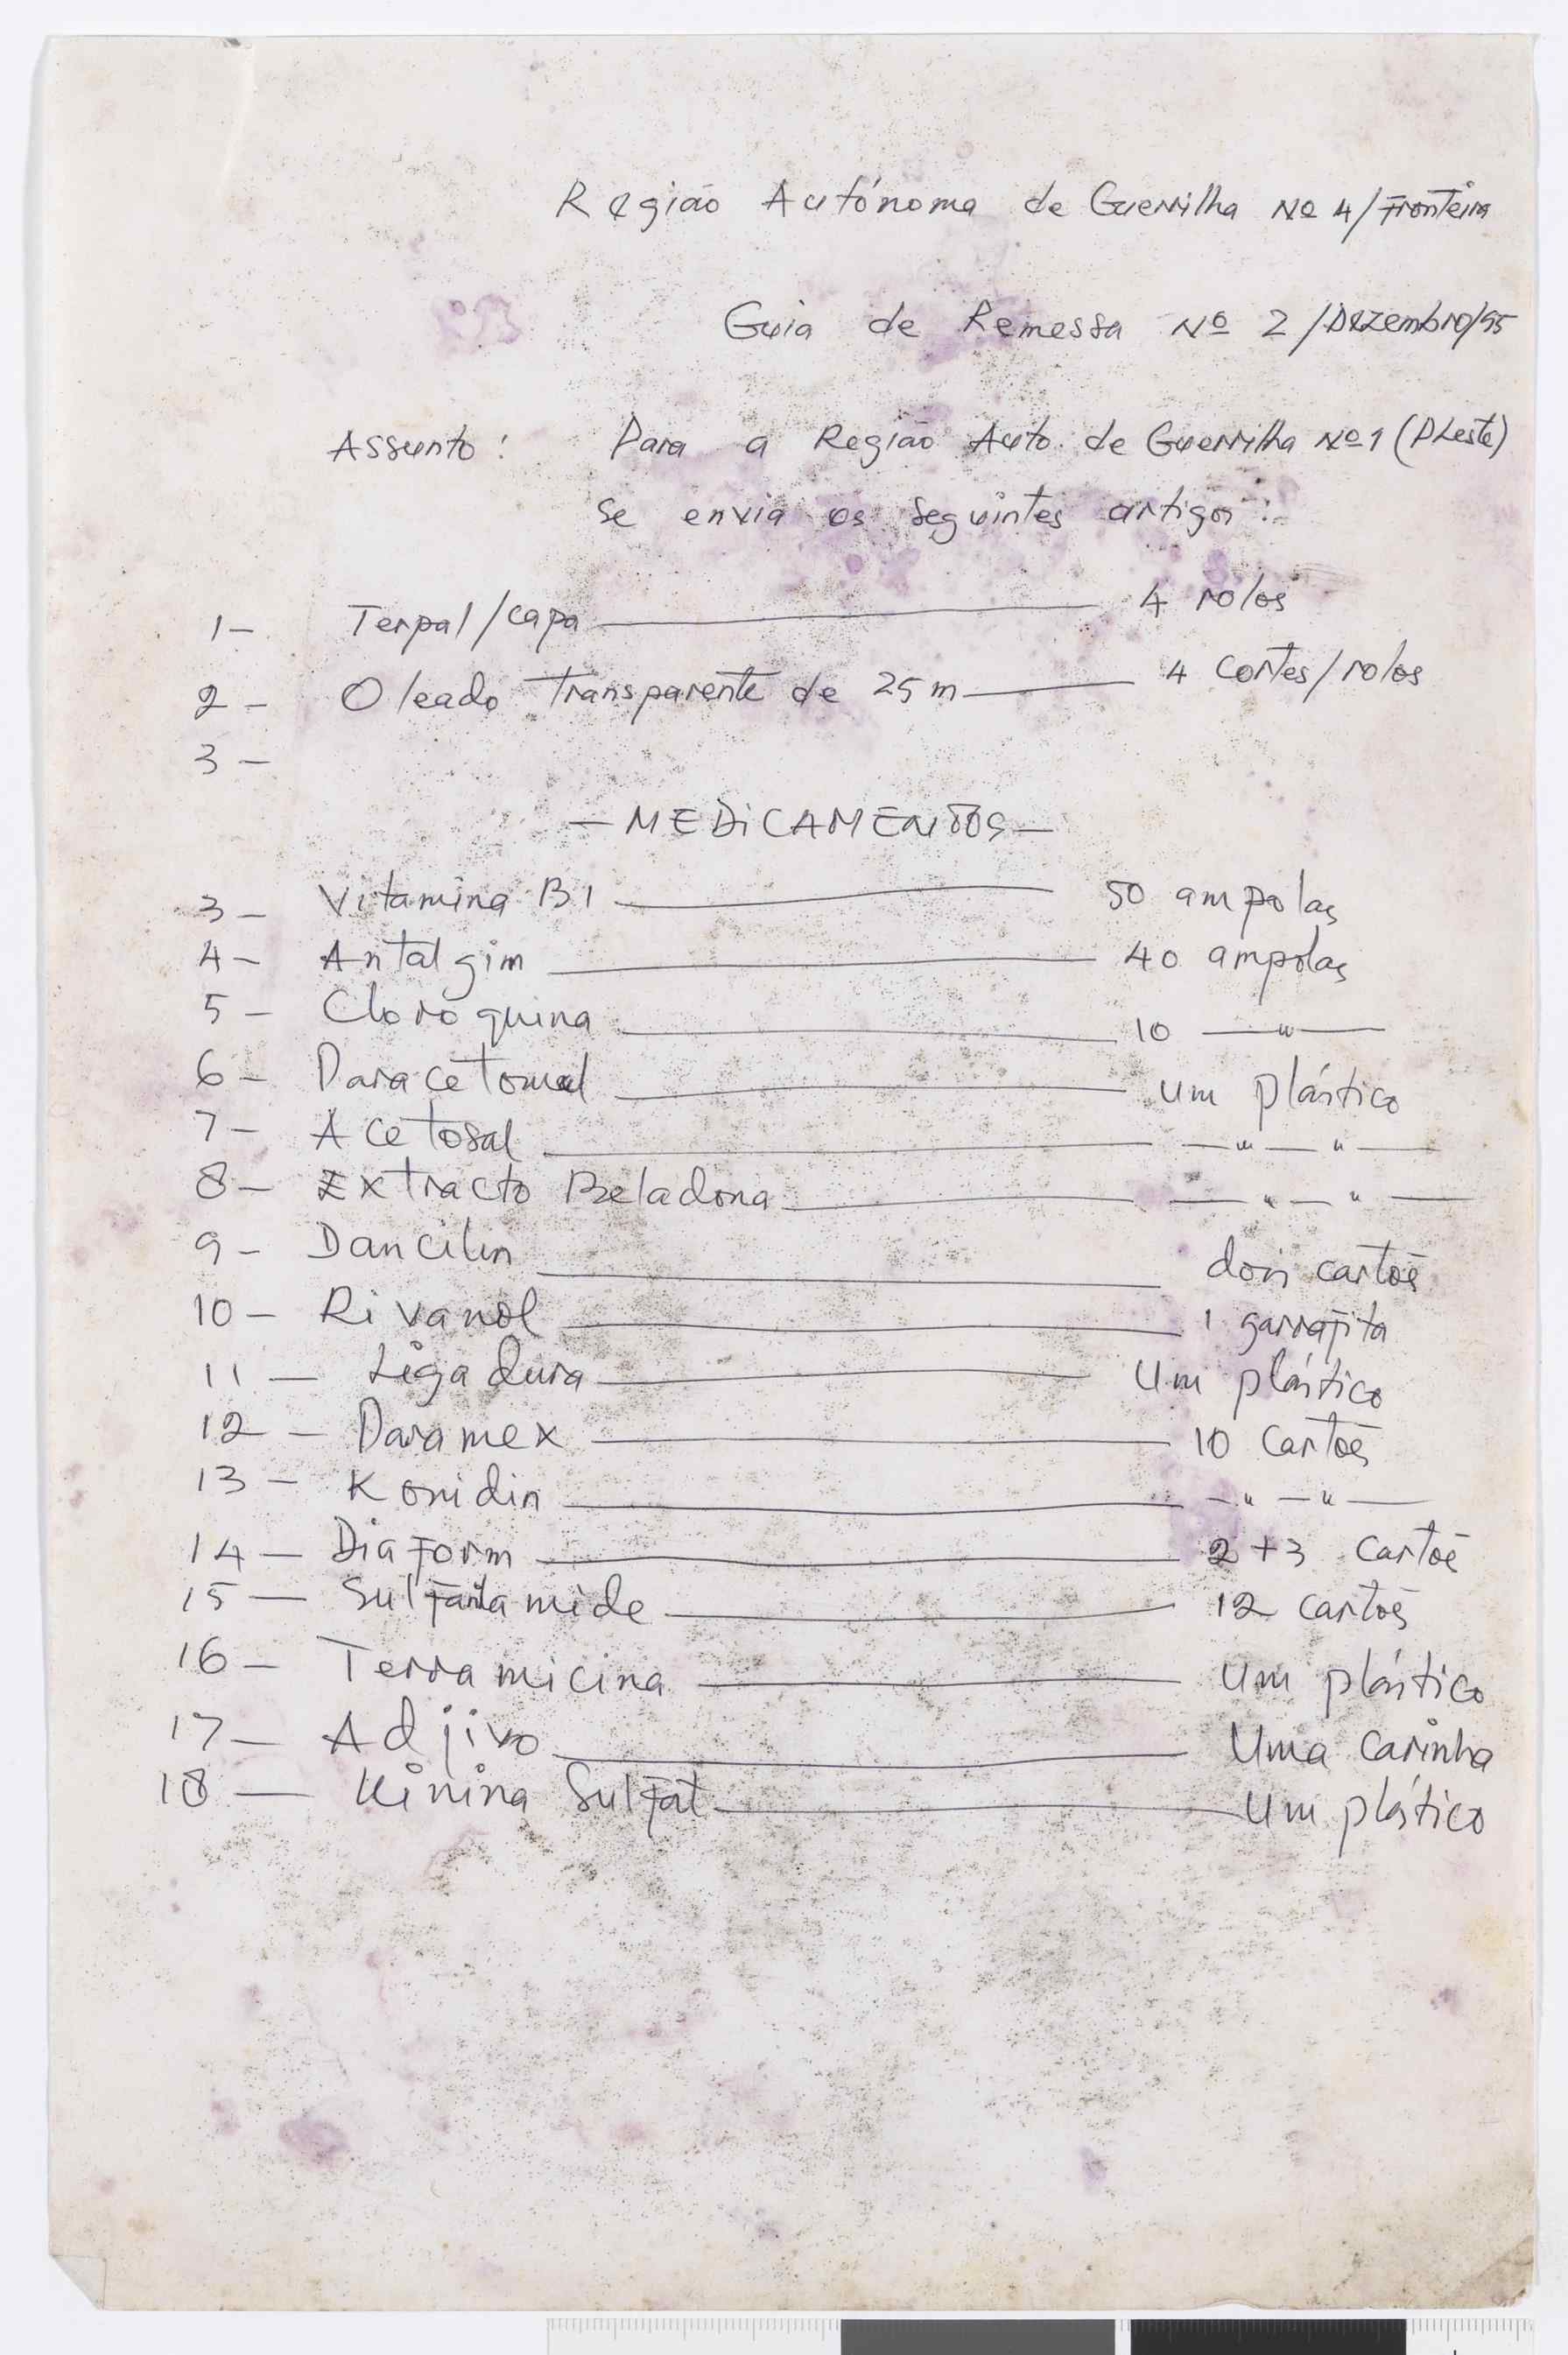 Região Autónoma de Guerrilha Nº 4/Fronteira
Guia de Remessa Nº 2/Dezembro/95
Assunto: Para a Região Auto. de Guerrilha Nº 1 (PLeste)
se envia os seguintes artigos:
1- Terpal/capa — 4 rolos
2- Oleado transparente de 25 m — 4 cortes/rolos
3-
- MEDiCAMENTOS -
3- Vitamina B1 — 50 ampolas
4- Antalgim — 40 ampolas
5- Cloroquina — 10 — " —
6- Paracetomal — um plástico
7- Acetosal — " — " —
8- Extracto Beladona — " — " —
9- Pancilin — dois cartõs
10- Rivanol — 1 garrafita
11- Ligadura — Um plástico
12- Paramex — 10 Cartõs
13- Konidin — " — " —
14- Diaform — 2+3 cartõs
15- Sulfanlamide — 12 cartõs
16- Terramicina — Um plástico
17- Adjivo — Uma caxinha
18- Kinina Sulfat — Um plástico